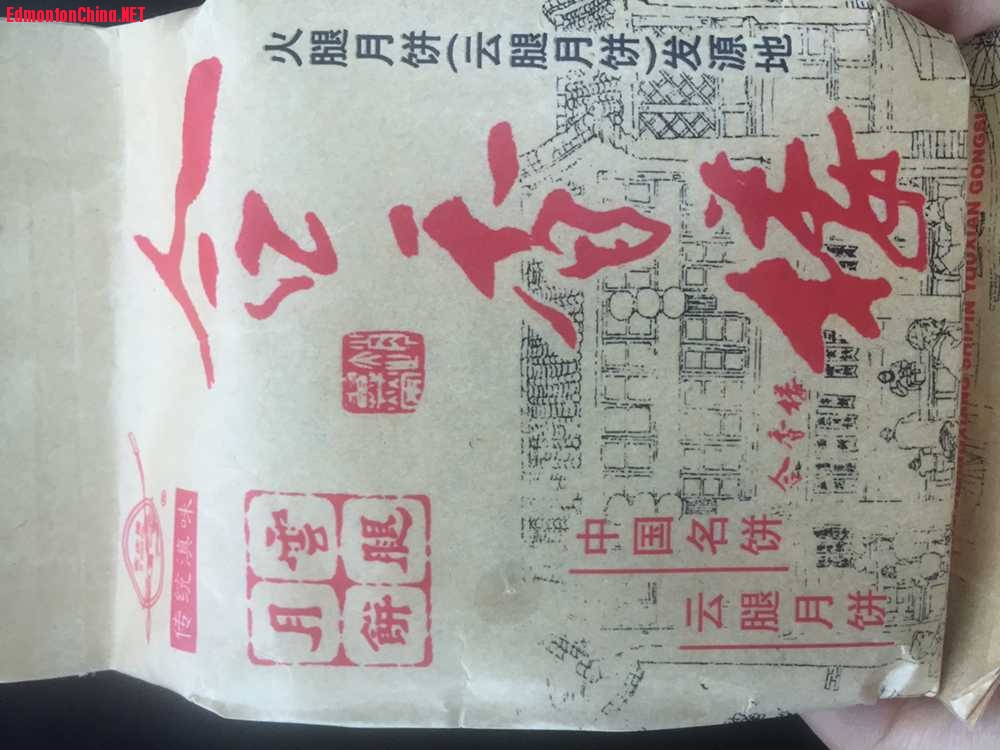 EdmontonChina.NET
火腿月饼(云腿月饼)发源地
合香楼
传统滇味
®
雲腿
月餅
合香楼
中国名饼
云腿月饼
SHIPIN YOUXIAN GONGSI